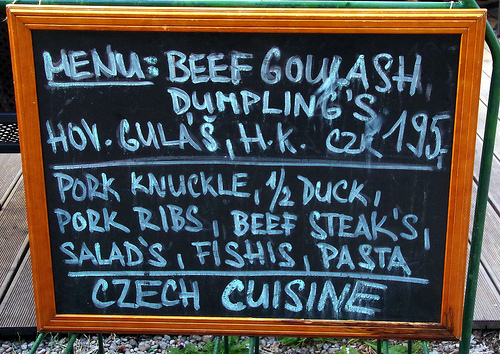 MENU: BEEF GOULASH,
DUMPLING'S
HOV. GULÁŠ, H.K. CZK 195,
PORK KNUCKLE, 1/2 DUCK,
PORK RIBS, BEEF STEAK'S,
SALAD'S, FISHIS, PASTA
CZECH CUISINE